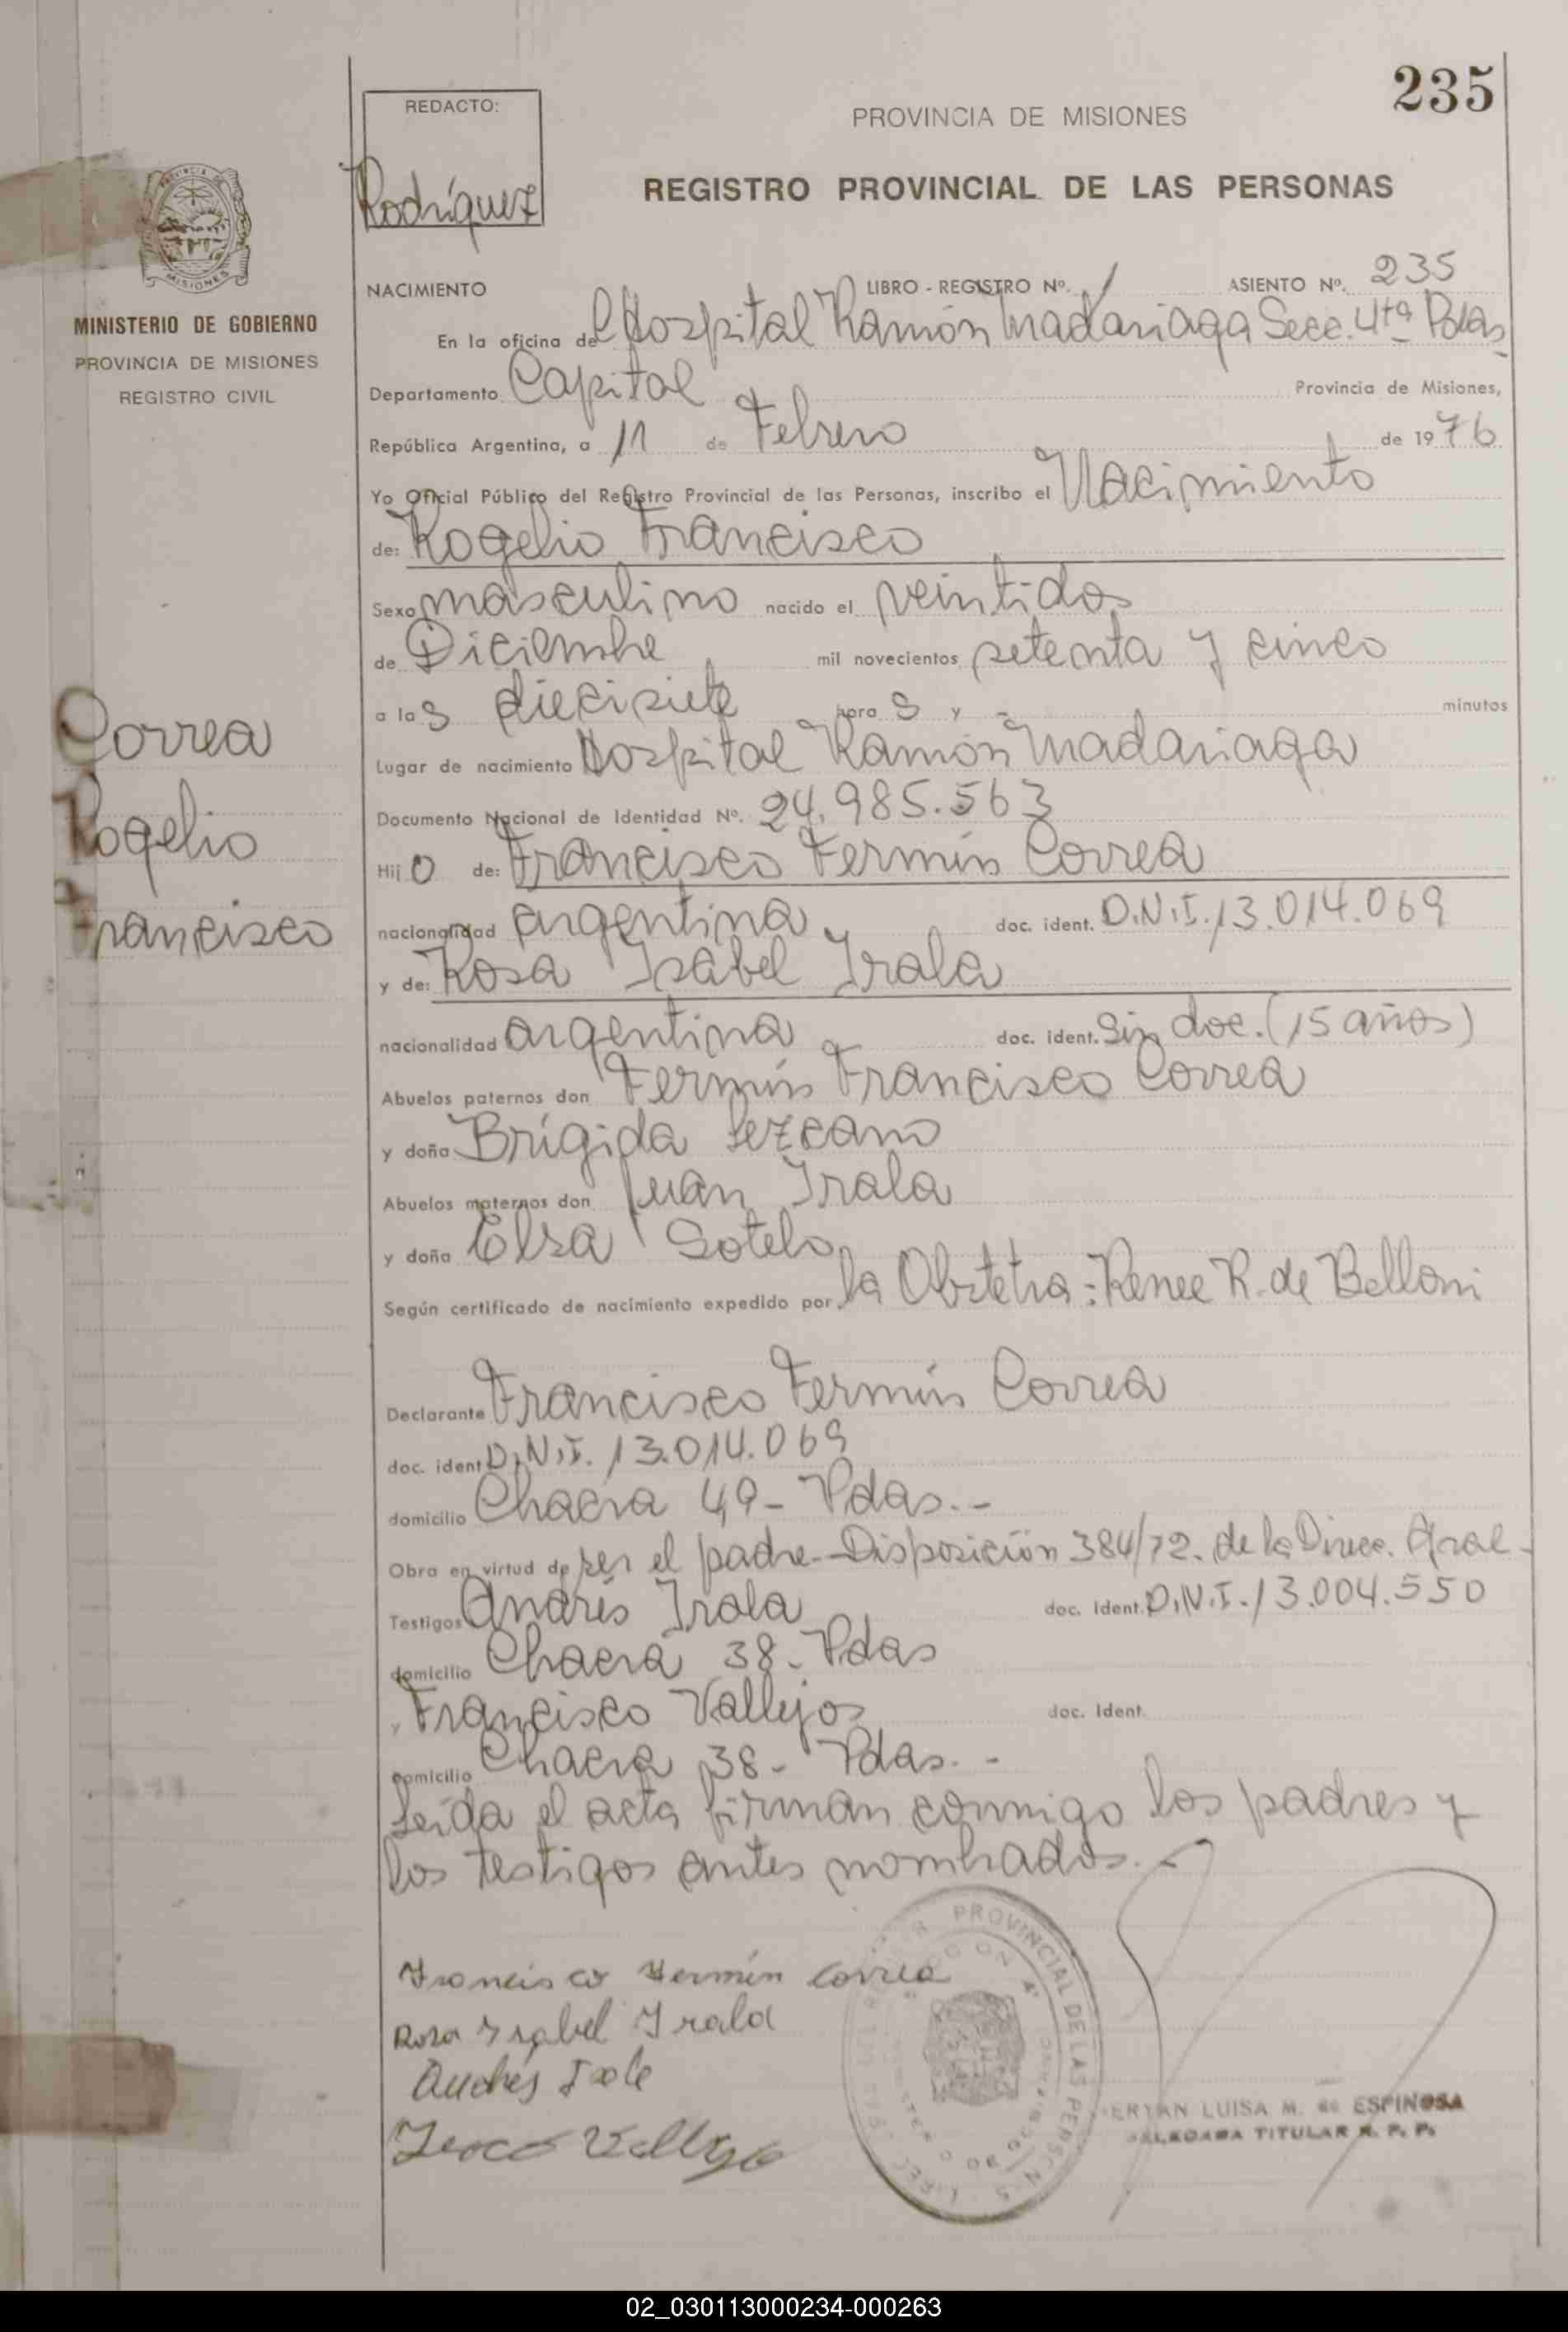 235
REDACTO:
Rodríguez
PROVINCIA DE MISIONES
REGISTRO PROVINCIAL DE LAS PERSONAS
MISIONES
MINISTERIO DE GOBIERNO
PROVINCIA DE MISIONES
REGISTRO CIVIL
NACIMIENTO LIBRO - REGISTRO Nº. 1 ASIENTO Nº. 235
En la oficina del Hospital Ramón Madariaga Secc. 4ta Pdas
Departamento Capital Provincia de Misiones,
República Argentina, a 11 de Febrero de 1976
Yo Oficial Público del Registro Provincial de las Personas, inscribo el Nacimiento
de: Rogelio Francisco
Sexo masculino nacido el veintidos
de Diciembre mil novecientos setenta y cinco
a las diecisiete horas y - minutos
Lugar de nacimiento Hospital Ramón Madariaga
Documento Nacional de Identidad Nº. 24.985.563
Correa
Rogelio
Francisco
Hijo de: Francisco Fermín Correa
nacionalidad argentina doc. ident. D.N.I. 13.014.069
y de: Rosa Isabel Irala
nacionalidad argentina doc. ident. Sin doc. (15 años)
Abuelos paternos don Fermín Francisco Correa
y doña Brígida Lezcano
Abuelos maternos don Juan Irala
y doña Elsa Sotelo
Según certificado de nacimiento expedido por la Obstetra: Renee R. de Belloni
Declarante Francisco Fermín Correa
doc. ident D.N.I. 13.014.069
domicilio Chacra 49- Pdas.-
Obra en virtud de ser el padre.-Disposición 384/72. de la Direcc. Gral-
Testigos Andrés Irala doc. Ident. D.N.I. 13.004.550
domicilio Chacra 38- Pdas
y Francisco Vallejos doc. Ident.
domicilio Chacra 38- Pdas. -
Leída el acta firman conmigo los padres y
los testigos antes nombrados.-
Francisco Fermín Correa
Rosa Ysabel Yrala
PROVINCIAL DE LAS PERSON S
LUISA M. de ESPINOSA
TITULAR R. P. P.
02_030113000234-000263